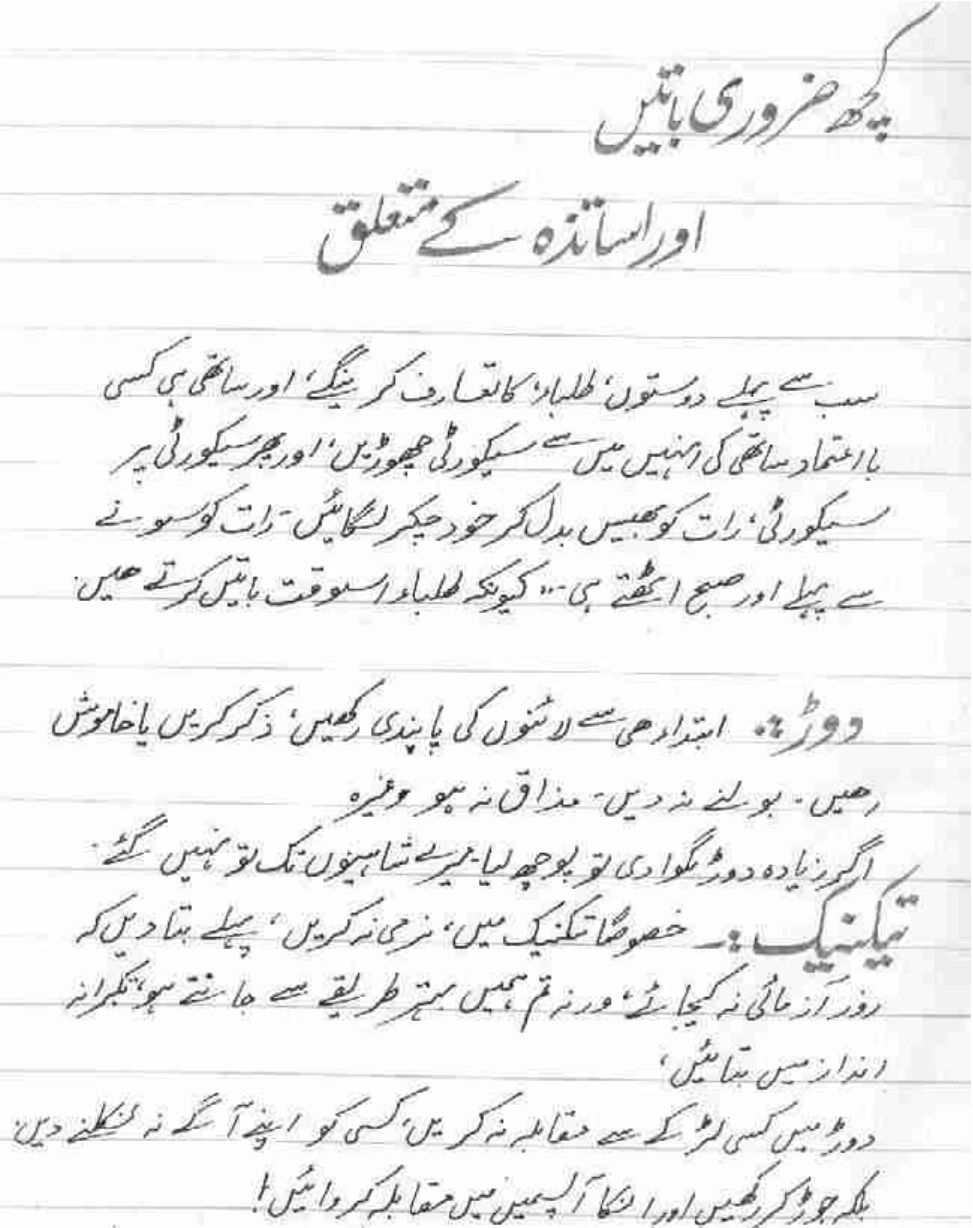 کچھ ضروری باتیں
اور اساتذہ کے متعلق
سب سے پہلے دوستوں، طلباء، کا تعارف کرینگے، اور ساتھی ہی کسی
بااعتماد ساتھی کی انہیں میں سے سیکورٹی چھوڑیں، اور پھر سیکورٹی پر
سیکورٹی، رات کو بھیس بدل کر خود چکر لگائیں۔ رات کو سونے
سے پہلے اور صبح اٹھتے ہی ... کیونکہ طلباء اسوقت باتیں کرتے ھیں۔
دوڑ:۔ ابتداء ھی سے لائنوں کی پابندی رکھیں، ذکر کریں یا خاموش
رھیں۔ بولنے نہ دیں۔ مذاق نہ ہو وغیرہ
اگر زیادہ دوڑ لگوا دی تو پوچھ لیا۔ میرے شاہینوں تک تو نہیں گئے۔
تیکنیک:۔ خصوصًا تکنیک میں، نرمی نہ کریں، پہلے بتا دیں کہ
زور آزمائی نہ کیجائے، ورنہ تم ہمیں بہتر طریقے سے جانتے ہو،
انداز میں بتائیں،
دوڑ میں کسی لڑکے سے مقابلہ نہ کریں، کسی کو اپنے آگے نہ نکلنے دیں۔
بلکہ جوڑ کر رکھیں اور انکا آپسمیں میں مقابلہ کروائیں!